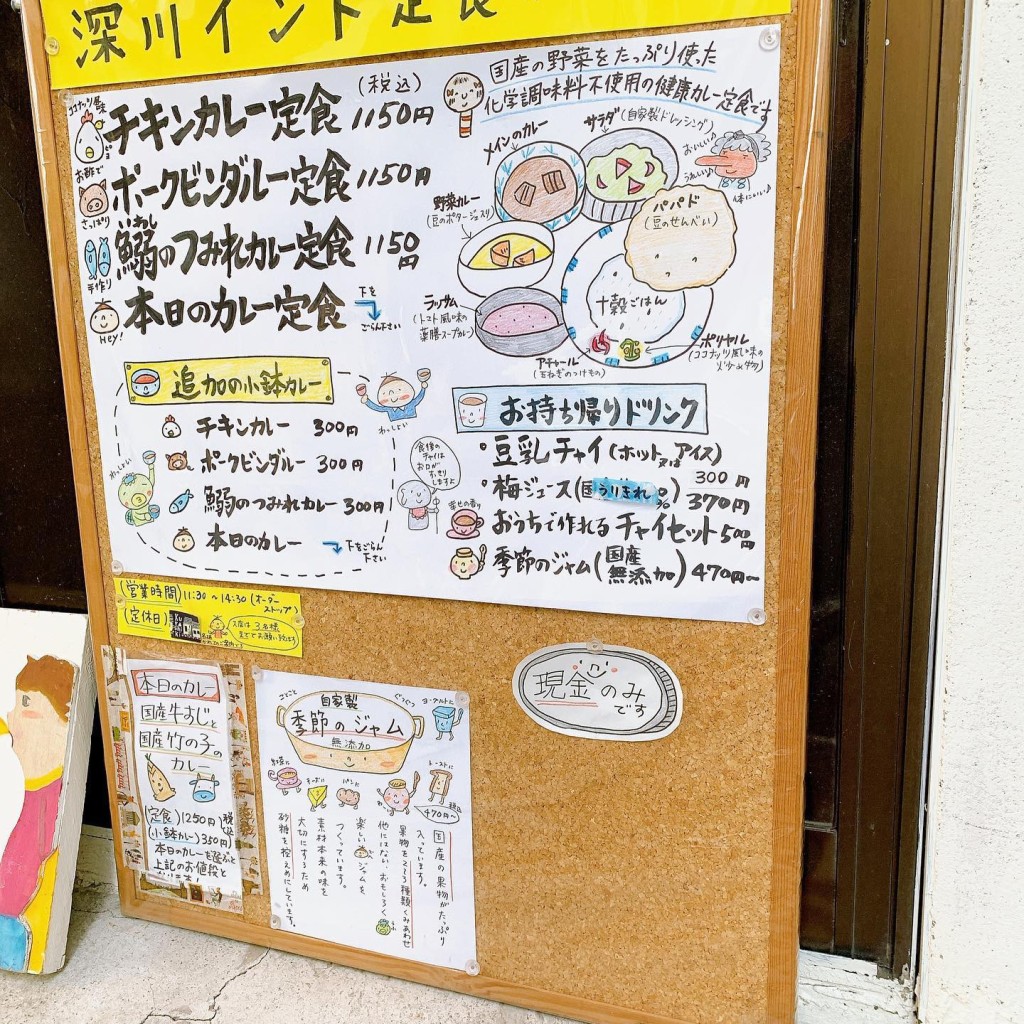 深川インド定食
国産の野菜をたっぷり使った
化学調味料不使用の健康カレー定食です
(税込)
ココナッツ風味
チキンカレー定食 1150円
お酢で
さっぱり
ポークビンダルー定食 1150円
いわし
鰯のつみれカレー定食 1150円
手作り
本日のカレー定食
下を
ごらん下さい
Hey!
メインのカレー
サラダ(自家製ドレッシング)
おいしい♪
うれしい♪
体にいい♪
野菜カレー
(豆のポタージュスリ)
パパド
(豆のせんべい)
十穀ごはん
ラッサム
(トマト風味の
薬膳スープカレー)
アチャール
(玉ねぎのつけもの)
ポリヤル
(ココナッツ風味の
いため物)
追加の小鉢カレー
チキンカレー 300円
ポークビンダルー 300円
鰯のつみれカレー 300円
本日のカレー
下をごらん
下さい
わっしょい
わっしょい
お持ち帰りドリンク
食後の
チャイは
お口が
すっきり
しますよ
幸せの香り
・豆乳チャイ(ホット又はアイス)
300円
・梅ジュース(国 うりきれ %) 370円
おうちで作れるチャイセット 500円
季節のジャム(国産
無添加) 470円~
(営業時間) 11:30 ~ 14:30 (オーダー
ストップ)
(定休日)
入店は3名様
まででお願い致します
本日のカレー
国産牛すじと
国産竹の子の
カレー
(定食) 1250円(税込)
(小鉢カレー) 350円
本日のカレーを選ぶと
上記のお値段と
なります!
現金のみ
です
ことこと
ぐつぐつ
自家製
季節のジャム
無添加
ヨーグルトに
紅茶に
チーズに
パンに
トーストに
税込
470円~
国産の果物がたっぷり
入っています。
果物を2~3種類くみあわせ
他にはない、おもしろく
楽しいジャムを
つくっています。
素材本来の味を
大切にするため
砂糖を控えめにしています。